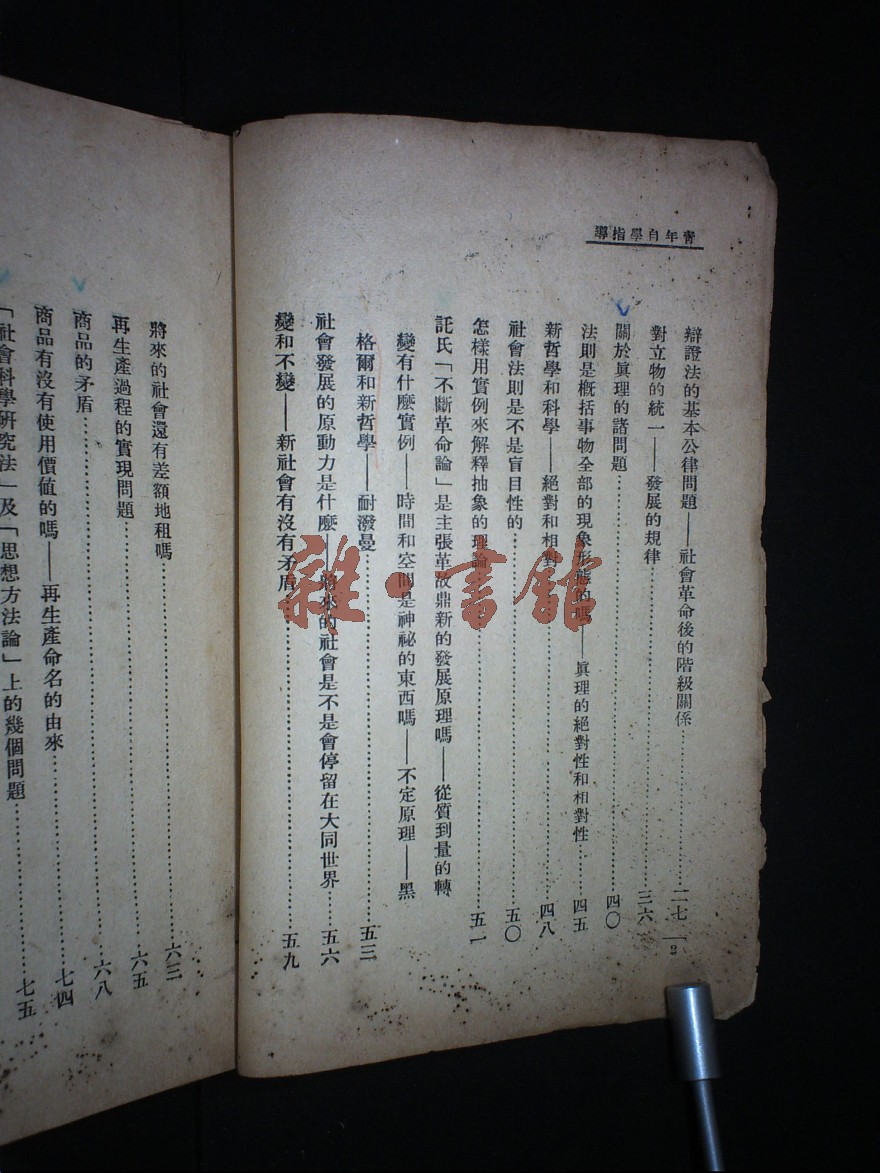 青年自學指導
辯證法的基本公律問題——社會革命後的階級關係…………二七
對立物的統一——發展的規律…………三六
關於眞理的諸問題…………四〇
法則是概括事物全部的現象形態的嗎——眞理的絕對性和相對性…………四五
新哲學和科學——絕對和相對…………四八
社會法則是不是盲目性的…………五〇
怎樣用實例來解釋抽象的理論…………五一
託氏「不斷革命論」是主張革故鼎新的發展原理嗎——從質到量的轉
變有什麼實例——時間和空間是神祕的東西嗎——不定原理——黑
格爾和新哲學——耐潑曼…………五三
社會發展的原動力是什麼——將來的社會是不是會停留在大同世界…………五六
變和不變——新社會有沒有矛盾…………五九
2
將來的社會還有差額地租嗎…………六三
再生產過程的實現問題…………六五
商品的矛盾…………六八
商品有沒有使用價值的嗎——再生產命名的由來…………七四
「社會科學研究法」及「思想方法論」上的幾個問題…………七五
雜·書館